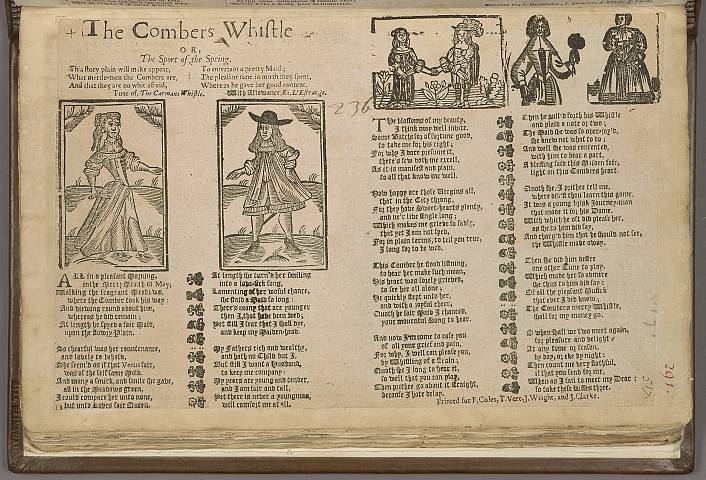 The Combers Whistle
OR,
The Sport of the Spring.
This story plain will make appear,
What mettlemen the Combers are,
And that they are no whit afraid,
To entertain a pretty Maid;
The pleasant tune in mirth they spent,
Whereas he gave her good content.
Tune of, The Carmans Whistle.
With Allowance, Ro. L'Estrange.
236
ALL in a pleasant Morning,
in the Merry Month of May;
Walking the fragrant Meadows,
where the Comber took his way:
And viewing round about him,
whereas he did remain;
At length he spyed a fair Maid,
upon the flowry Plain.
So chearful was her countenance,
and lovely to behold,
She seem'd as if that Venus fair,
was of the self same mold.
And many a smirk, and smile she gave,
all in the Meadows green,
I could compare her unto none,
but unto Loves fair Queen.
At length she turn'd her smiling
into a love-sick song,
Lamenting of her woful chance,
she staid a Maid so long:
There's many that are younger
then I, that have been wed;
Yet still I fear that I shall dye,
and keep my Maiden-head.
My Fathers rich and wealthy,
and hath no Child but I,
But still I want a Husband,
to keep me company:
My years are young and tender,
and I am fair and tall,
Yet there is never a youngman,
will comfort me at all.
The blossoms of my beauty,
I think may well invite,
Some Batchelor of fortune good,
to take me for his right;
For why I dare presume it,
there's few doth me excell,
As it is manifest and plain,
to all that know me well.
How happy are those Virgins all,
that in the City throng,
For they have Sweet-hearts plenty,
and ne'r live single long;
Which makes me grieve so sadly,
that yet I am not sped,
For in plain terms, to tell you true,
I long for to be wed.
This Comber he stood listning,
to hear her make such moan,
His heart was sorely grieved,
to see her all alone;
He quickly stept unto her,
and with a joyful chear,
Quoth he fair Maid I chanced,
your mournful Song to hear.
And now I'm come to ease you
of all your grief and pain,
For why, I well can please you,
by Whistling of a strain;
Quoth she I long to hear it,
so well that you can play,
Then prithee go about it straight,
because I hate delay.
Then he pull'd forth his Whistle
and plaid a note or two;
The Maid she was so over-joy'd,
she knew not what to do;
And well she was contented,
with him to bear a part,
A blessing said this Maiden fair,
light on this Combers heart.
Quoth she, I prithee tell me,
where did'st thou learn this game,
It was a young brisk Journey-man
that made it for his Dame.
With which he oft did please her,
as she to him did say,
And charg'd him that he should not see,
the Whistle made away.
Then he did him desire
one other Tune to play,
Which made her so admire
she thus to him did say:
Of all the pleasant Musick
that ever I did know,
The Combers merry Whistle,
shall for my money go.
O when shall we two meet again,
for pleasure and delight
At any time or season,
by day, or else by night:
Then count me very faithful,
if that you send for me,
When as I fail to meet my Dear:
so take these kisses three.
Printed for F. Coles, T. Vere, J. Wright, and J. Clarke.
192